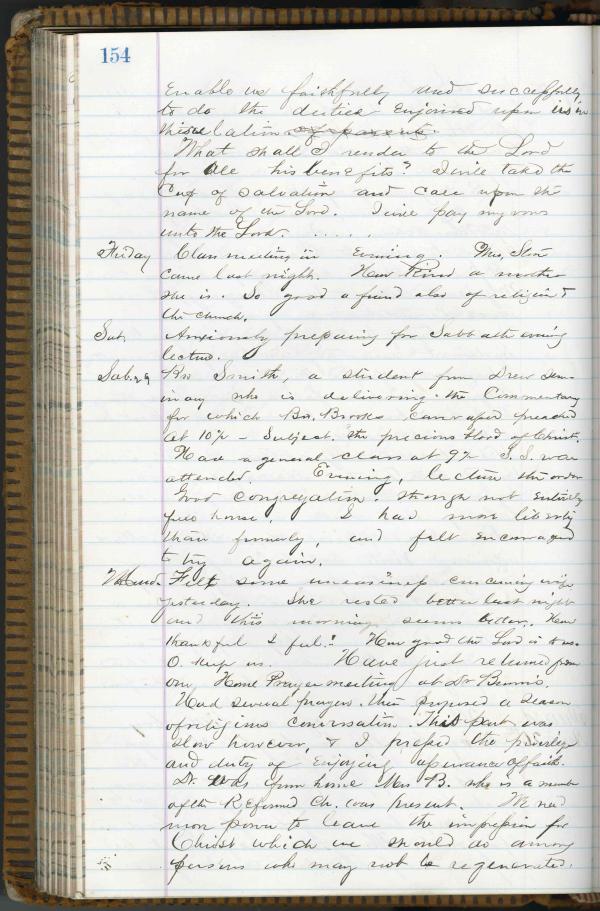 154
Enable us faithfully and successfully
to do the duties enjoined upon us in
this relation of parents.
What shall I render to the Lord
for all his benefits? I will take the
Cup of Salvation and call upon the
name of the Lord. I will pay my vows
unto the Lord. . . . . .
Friday Class meeting in Evening. Mrs,
came last night. How kind a mother
she is. So good a friend also of religion &
the church.
Sat. Anxiously preparing for Sabbath evening
lecture.
Sab. 29 Bro Smith, a student from Drew Sem-
inary who is delivering the Commentary
for which Bro. Brooks canvassed preached
at 10½ - Subject. The precious blood of Christ.
Have a general class at 9½ S. S. was
attended. Evening, lecture the order
Good congregation. though not entirely
full house. I had more liberty
than formerly, and felt encouraged
to try again.
Mond. Felt some uneasiness concerning wife
yesterday. She rested better last night
and this morning seems better. How
thankful I feel! How good the Lord is to us.
O keep us. Have just returned from
our Home Prayer meeting at Dr
Had several prayers. then proposed a season
of religious conversation. This part was
slow however, & I pressed the privilege
and duty of enjoying assurance of faith.
Dr. was from home Mrs B. who is a member
of the Reformed Ch. was present. We need
more power to leave the impression for
Christ which we should do among
persons who may not be regenerated.